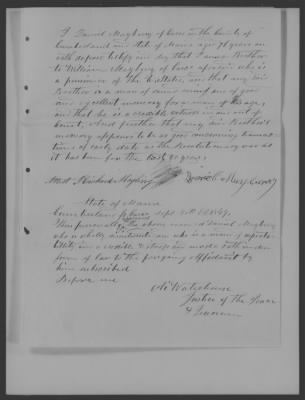 I Daniel Mayberry of Casco in the County of
Cumberland and State of Maine age 78 years on
oath depose testify and say that I am a Brother
to William Mayberry of Casco aforesaid who is
a pensioner of the U States, and that my said
Brother is a man of sound mind and of good
and excellent memory for a man of his age,
and that he is a credible witness in any court of
Court. And further that my said Brother's
memory appears to be as good concerning transac
tions of early date as the Revolutionary war as
it has been for the last 40 years
Attest Richard Mayberry Daniel Mayberry
State of Maine
Cumberland ss Casco Sept 20th 1849
Then personally the above named Daniel Mayberry
who is wholly disinterested and who is a man of respecta
bility and a credible witness and made oath in due
form of law to the foregoing affidavit by
him subscribed
Before me
Waterhouse
Justice of the Peace
& Quorum